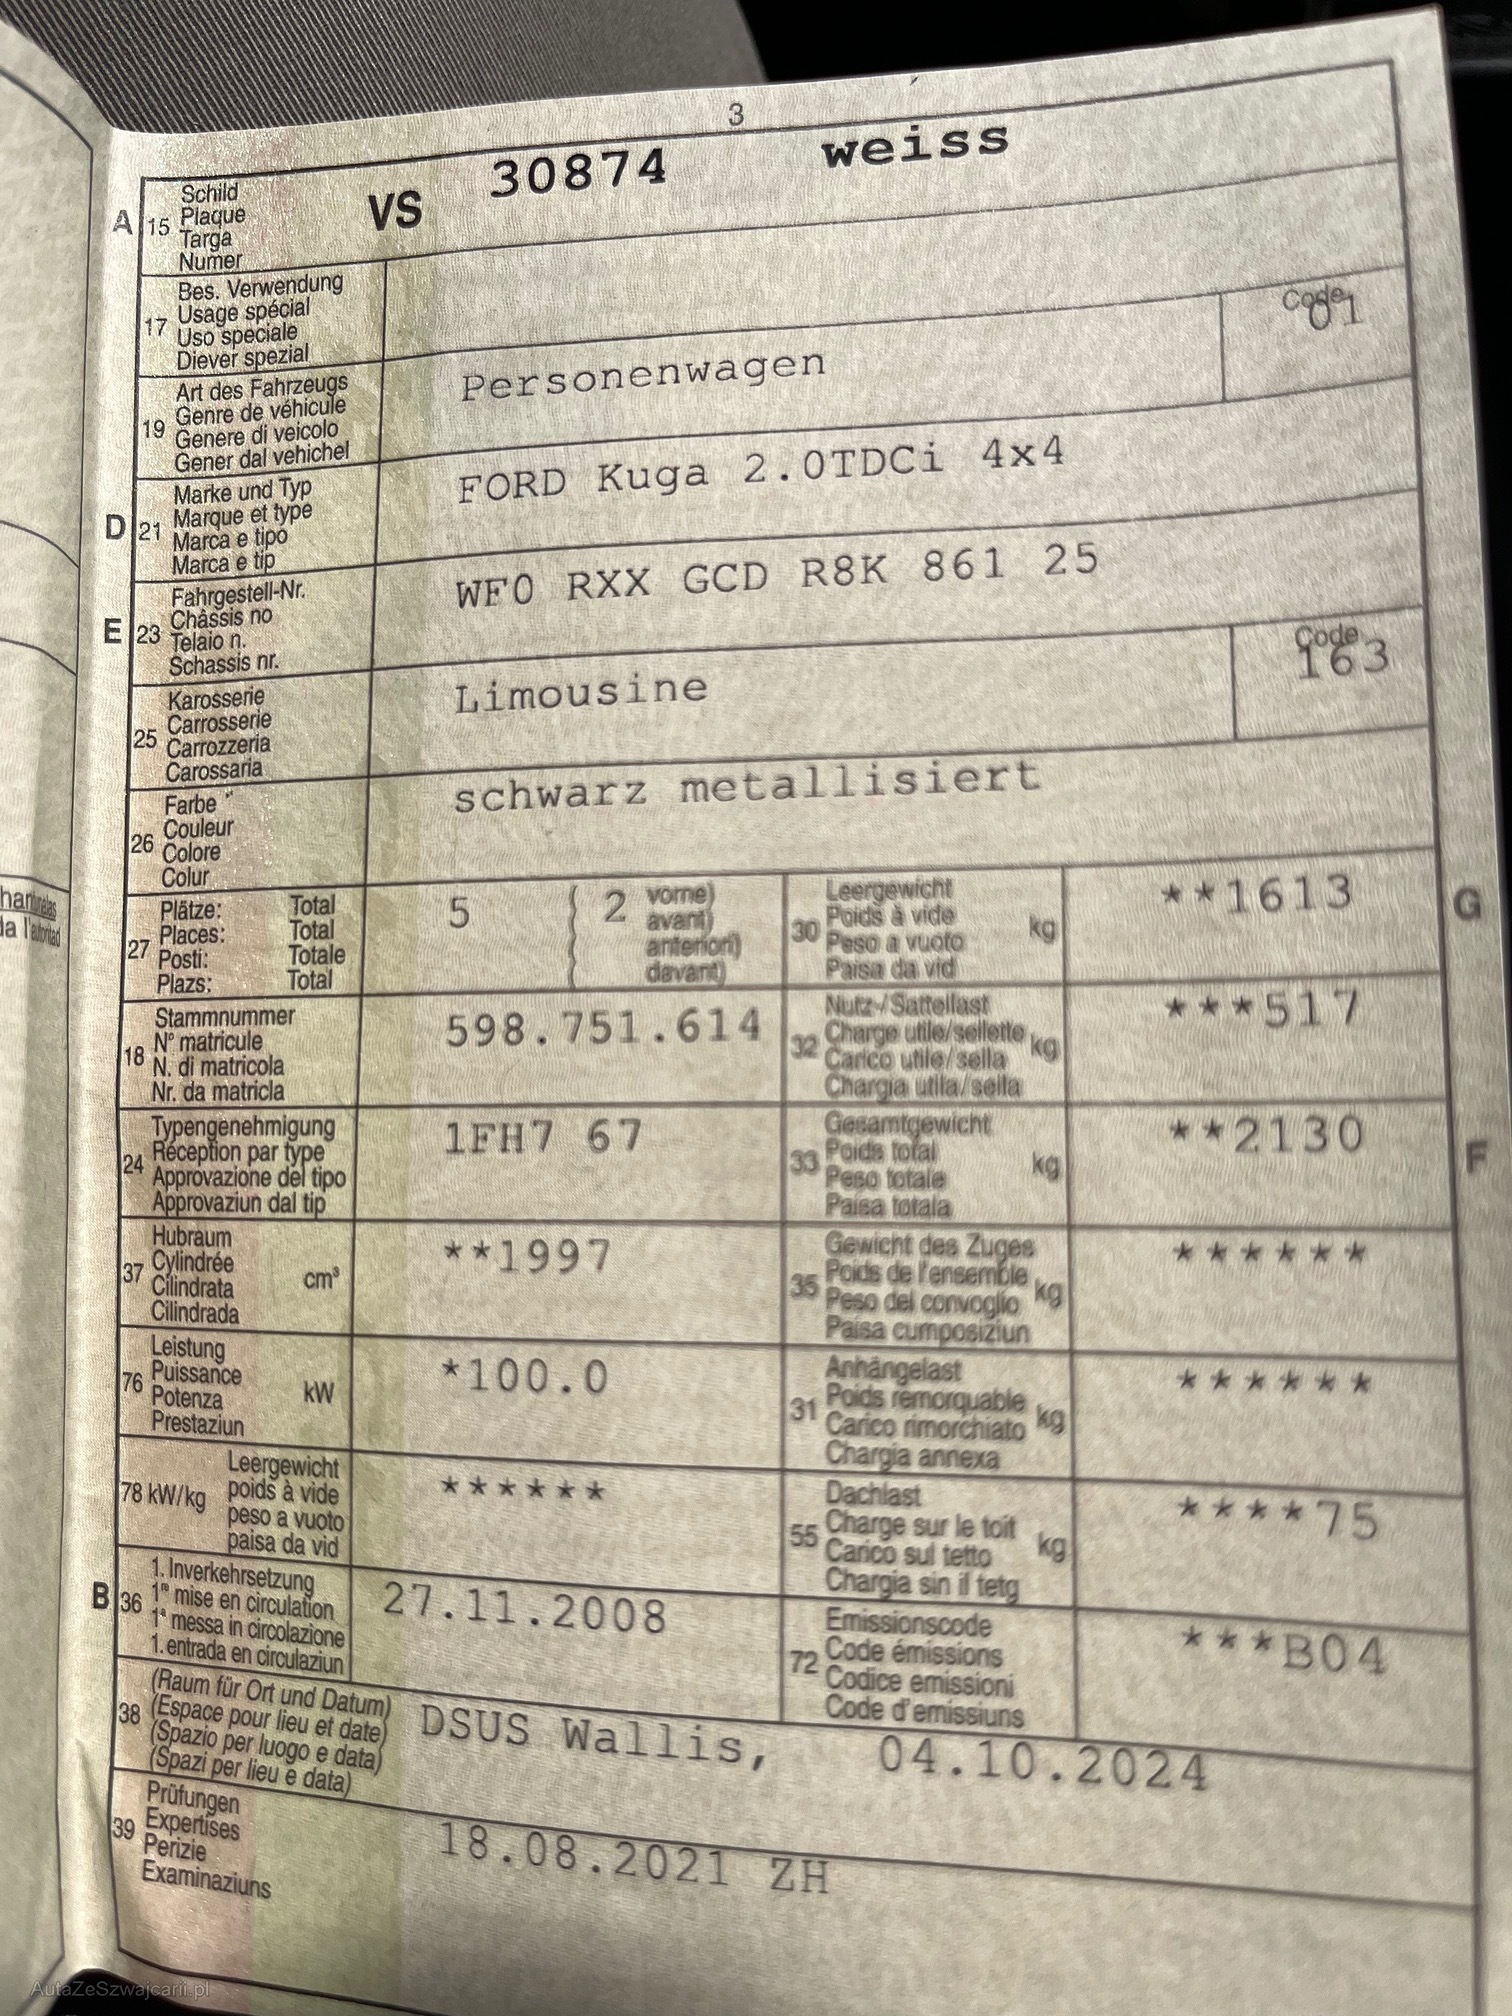 3
A 15 Schild VS 30874 weiss
Plaque
Targa
Numer
17 Bes. Verwendung
Usage spécial
Uso speciale
Diever spezial
19 Art des Fahrzeugs Personenwagen Code 01
Genre de véhicule
Genere di veicolo
Gener dal vehichel
D 21 Marke und Typ FORD Kuga 2.0TDCi 4x4
Marque et type
Marca e tipo
Marca e tip
E 23 Fahrgestell-Nr. WF0 RXX GCD R8K 861 25
Châssis no
Telaio n.
Schassis nr.
25 Karosserie Limousine Code 163
Carrosserie
Carrozzeria
Carossaria
26 Farbe schwarz metallisiert
Couleur
Colore
Colur
27 Plätze: Total 5 ( 2 vorne)
Places: Total ( avant)
Posti: Totale ( anteriori)
Plazs: Total ( davant)
30 Leergewicht kg **1613 G
Poids à vide
Peso a vuoto
Paisa da vid
18 Stammnummer 598.751.614
N° matricule
N. di matricola
Nr. da matricla
32 Nutz-/Sattellast kg ***517
Charge utile/sellette
Carico utile/sella
Chargia utila/sella
24 Typengenehmigung 1FH7 67
Réception par type
Approvazione del tipo
Approvaziun dal tip
33 Gesamtgewicht kg **2130 F
Poids total
Peso totale
Paisa totala
37 Hubraum cm³ **1997
Cylindrée
Cilindrata
Cilindrada
35 Gewicht des Zuges kg ******
Poids de l'ensemble
Peso del convoglio
Paisa cumposiziun
76 Leistung kW *100.0
Puissance
Potenza
Prestaziun
31 Anhängelast kg ******
Poids remorquable
Carico rimorchiato
Chargia annexa
78 kW/kg Leergewicht ******
poids à vide
peso a vuoto
paisa da vid
55 Dachlast kg ****75
Charge sur le toit
Carico sul tetto
Chargia sin il tetg
B 36 1. Inverkehrsetzung 27.11.2008
1re mise en circulation
1a messa in circolazione
1. entrada en circulaziun
72 Emissionscode ***B04
Code émissions
Codice emissioni
Code d'emissiuns
38 (Raum für Ort und Datum) DSUS Wallis, 04.10.2024
(Espace pour lieu et date)
(Spazio per luogo e data)
(Spazi per lieu e data)
39 Prüfungen 18.08.2021 ZH
Expertises
Perizie
Examinaziuns
AutaZeSzwajcarii.pl